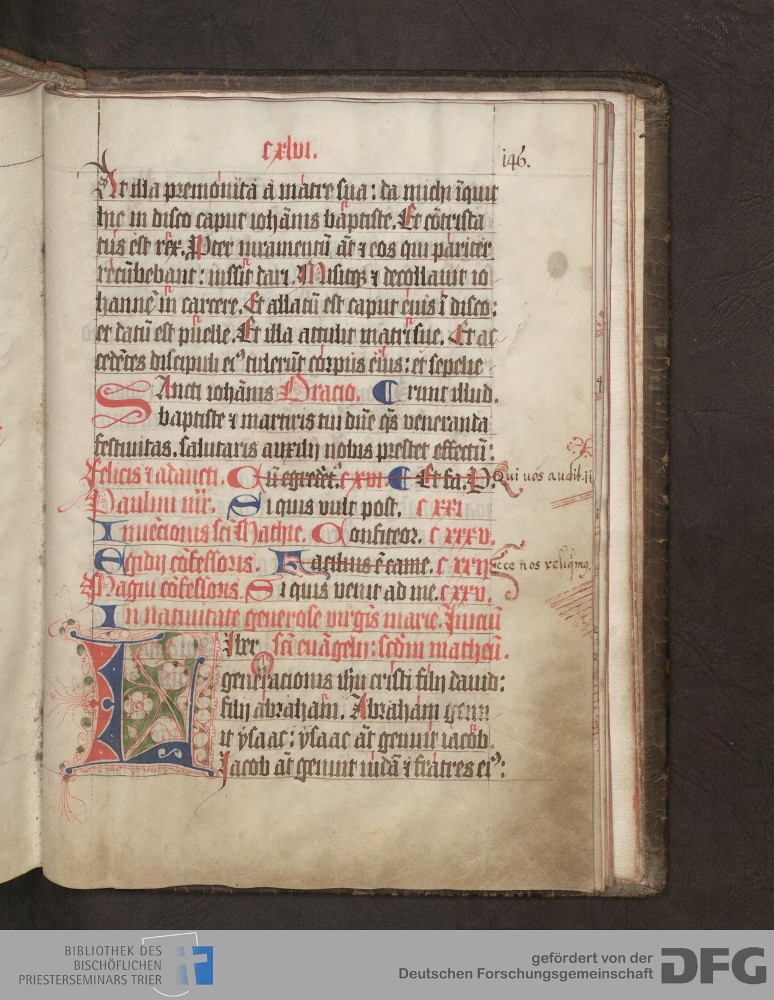 cxlvi.
146.
At illa premonita a matre sua: da michi īquit
hic in disco caput iohānis baptiste. Et cōtrista
tus est rex. Pter iuramentū āt ⁊ eos qui pariter
recūbebant: iussit dari. Misitqꝫ ⁊ decollauit io
hannē in carcere. Et allatū est caput euis ī disco:
et datū est puelle. Et illa attulit matri sue. Et ac
cedētes discipuli eiꝰ tulerūt corpus eius: et sepelie
Sancti iohānis Oracio. ¶ runt illud.
baptiste ⁊ martiris tui dūe qs veneranda
festiuitas. salutaris auxilij nobis prestet effectū:
felicis ⁊ adaucti. Cū egredēt. cxvi. ¶ Et fa. P. Qui vos audit. ij
Paulini nir. Si quis vult post. cxxi
Inuēcionis sci Mathie. Confiteor. cxxxv.
Egidij cōfessoris. Facilius ē came. cxxij Ecce nos reliqimꝯ.
Magni cōfessoris. Si quis venit ad me. cxxv.
In natiuitate generose virgis marie. Iniciū
Liber sci euāgelij: scdm matheū.
generacionis ihu cristi filij dauid:
filij abraham. Abraham genu
it ysaac: ysaac āt genuit iacob.
Jacob āt genuit iudā ⁊ fratres eiꝰ:
BIBLIOTHEK DES
BISCHÖFLICHEN
PRIESTERSEMINARS TRIER
gefördert von der
Deutschen Forschungsgemeinschaft
DFG